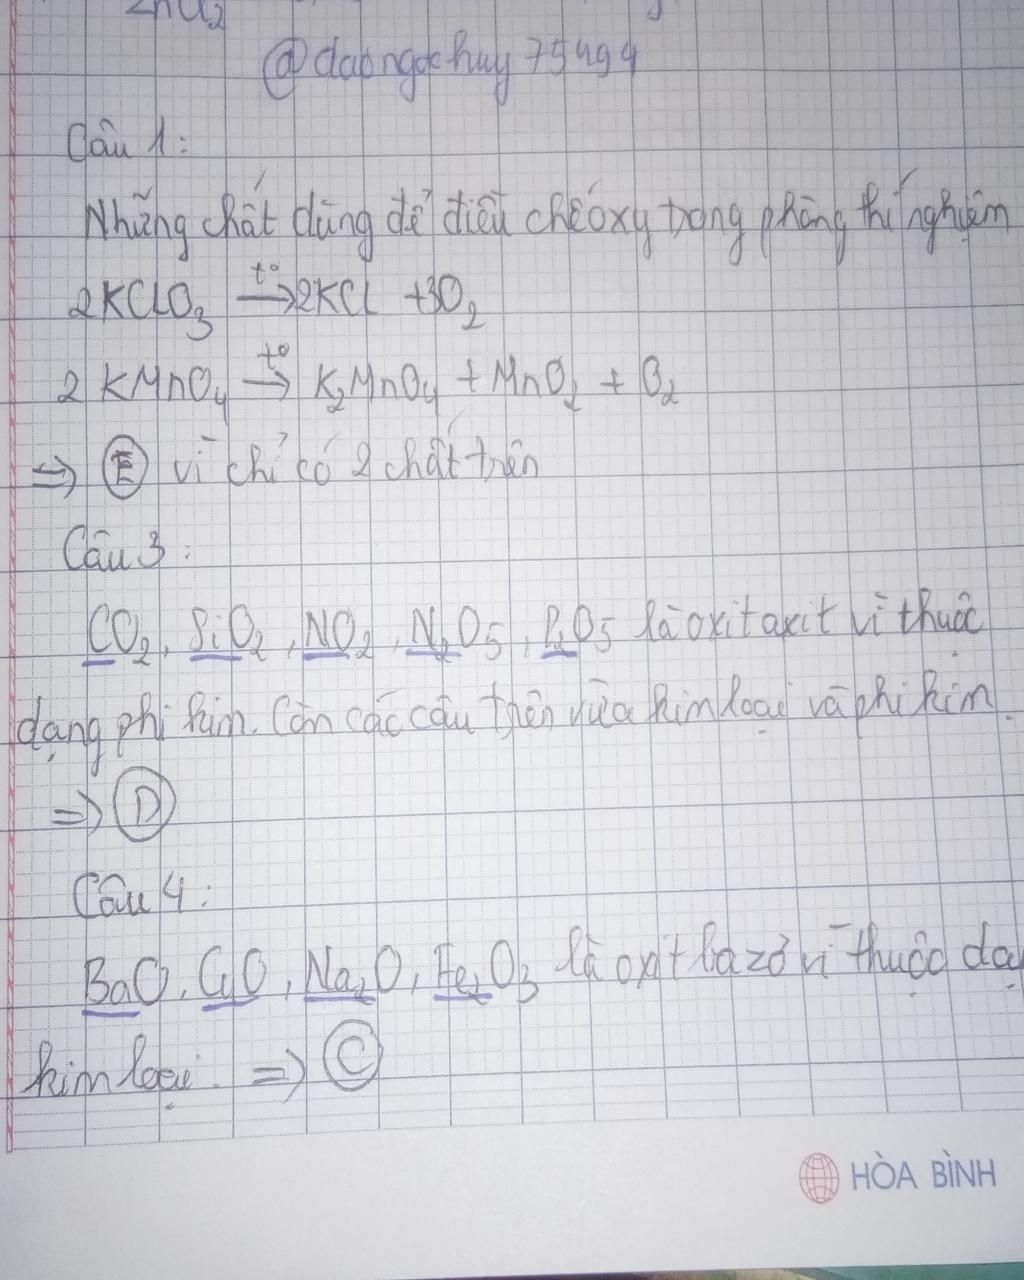 ZnCl2
@daongochuy75494
Câu 1:
Những chất dùng để điều chế oxy trong phòng thí nghiệm
2KClO3 t° → 2KCl + 3O2
2 KMnO4 t° → K2MnO4 + MnO2 + O2
=> E vì chỉ có 2 chất trên
Câu 3:
CO2, SiO2, NO2, N2O5, P2O5 là oxit axit vì thuộc
dạng phi kim. Còn các câu trên vừa kim loại và phi kim.
=> D
Câu 4:
BaO, CuO, Na2O, Fe2O3 là oxit bazơ vì thuộc dạ
kim loại. => C
HÒA BÌNH